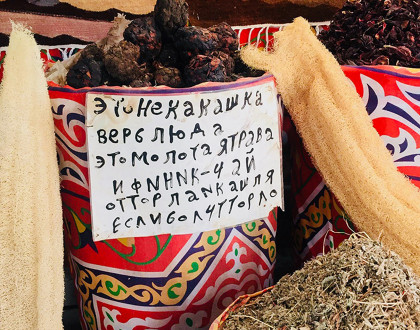 ЭТО НЕ КАКАШКА
ВЕРБЛЮДА
ЭТО МОЛОТАЯ ТРАВА
И ФИНИК-ЧАЙ
ОТ ГОРЛА И КАШЛЯ
ЕСЛИ БОЛИТ ГОРЛО